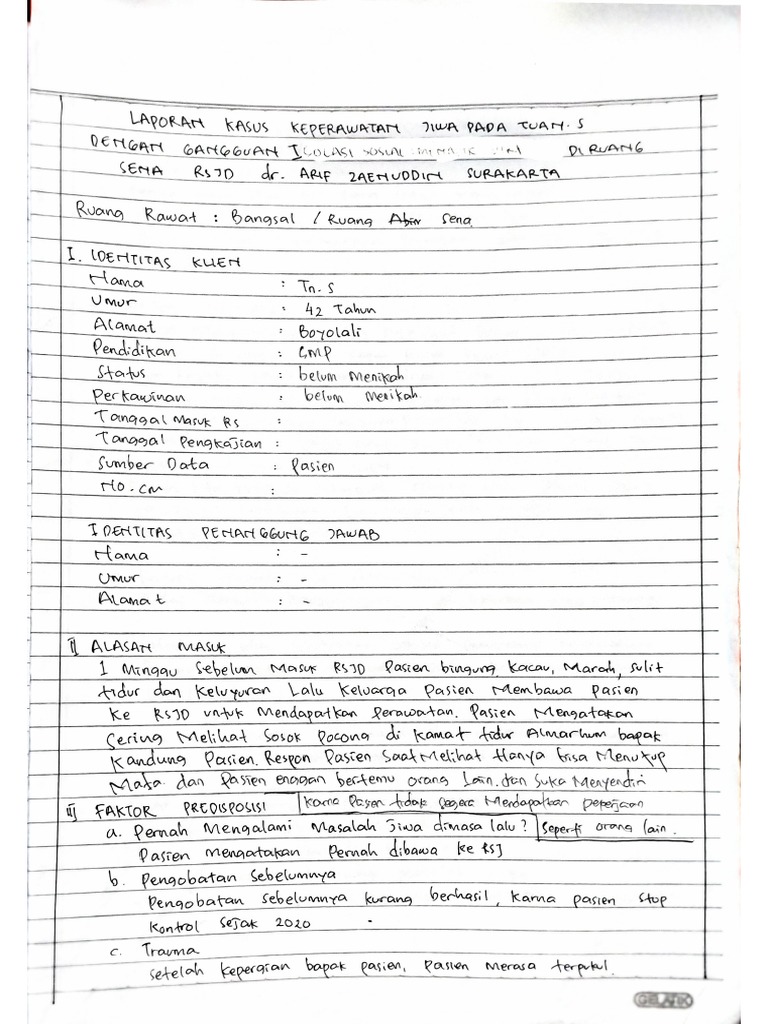 LAPORAN KASUS KEPERAWATAN JIWA PADA TUAN. S
DENGAN GANGGUAN ISOLASI SOSIAL DI RUANG
SENA RSJD dr. ARIF ZAENUDDIN SURAKARTA
Ruang Rawat : Bangsal / Ruang Sena
I. IDENTITAS KLIEN
Nama : Tn. S
Umur : 42 Tahun
Alamat : Boyolali
Pendidikan : SMP
Status : belum Menikah
Perkawinan : belum Menikah.
Tanggal Masuk RS :
Tanggal Pengkajian :
Sumber Data : Pasien
No. CM :
IDENTITAS PENANGGUNG JAWAB
Nama : -
Umur : -
Alamat : -
II ALASAN MASUK
1 Minggu Sebelum Masuk RSJD Pasien bingung, Kacau, Marah, sulit
tidur dan Keluyuran Lalu Keluarga Pasien Membawa Pasien
Ke RSJD untuk Mendapatkan perawatan. Pasien Mengatakan
Sering Melihat Sosok Pocong di Kamat tidur Almarhum bapak
Kandung Pasien. Respon Pasien Saat Melihat Hanya bisa Menutup
Mata dan Pasien enggan bertemu orang lain. dan Suka Menyendiri
III FAKTOR PREDISPOSISI Karna Pasien tidak segera Mendapatkan pekerjaan
a. Pernah Mengalami Masalah Jiwa dimasa lalu? Seperti orang lain.
Pasien mengatakan Pernah dibawa ke RSJ
b. Pengobatan Sebelumnya
Pengobatan sebelumnya kurang berhasil, Karna pasien stop
Kontrol Sejak 2020
c. Trauma
Setelah kepergian bapak pasien, Pasien Merasa terpukul.
GELATIK